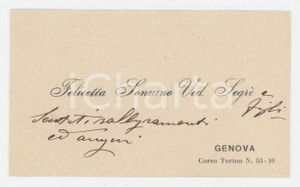 Felicetta Sonnino Ved. Segrè e
figli
rallegramenti
ed auguri
GENOVA
Corso Torino N.